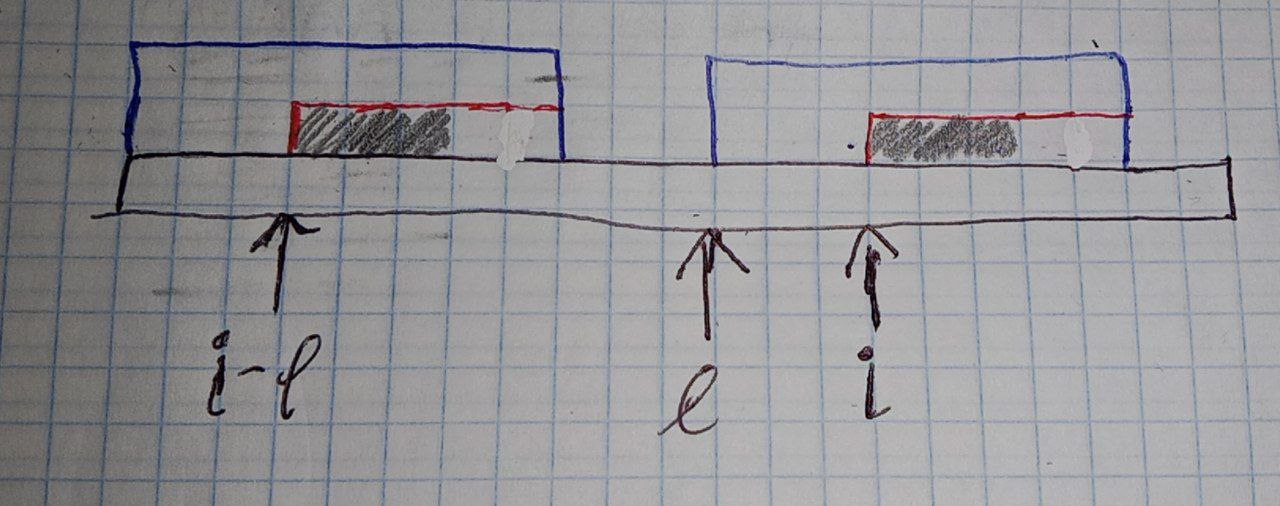 i-l l i